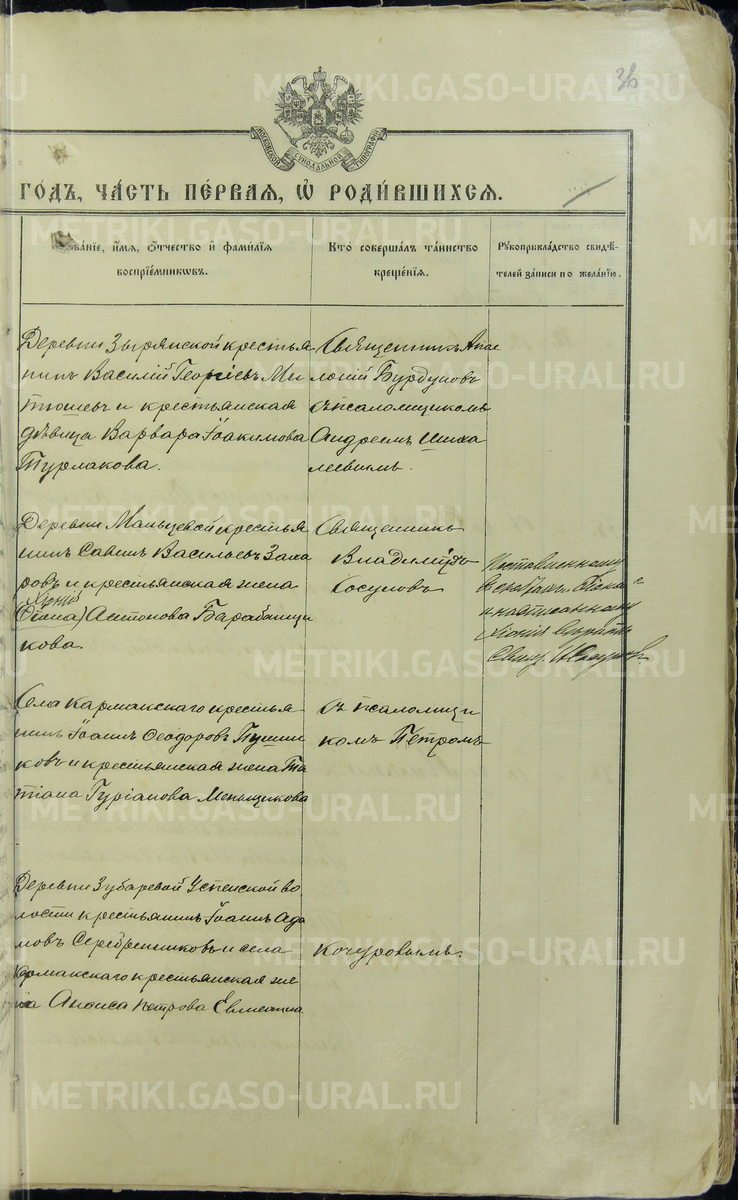 36
МОСКОВСКОЙ СѴНОДАЛЬНОЙ ТИПОГРАФІИ
ГО́ДЪ, ЧА́СТЬ ПЕ́РВАЯ, Ѽ РОДИ́ВШИХСЯ.
ва́нїе, и́мя, ѻ́тчество и҆ фами́лїя
воспрїе́мниковъ.
Кто̀ соверша́лъ та́инство
креще́нїя.
Рукоприкла́дство свидѣ́-
телей за́писи по жела́нїю.
Деревни Зырянской крестья
нинъ Василій Георгіевъ Ми
тюшевъ и крестьянская
дѣвица Варвара Іоакимова
Турлакова.
Священникъ Апол
лоній Бурдуковъ
съ псаломщикомъ
Андреемъ Шиха
левымъ.
Деревни Мальцевой крестья
нинъ Савинъ Васильевъ Заха
ровъ и крестьянская жена
Хіонія
(Ѳеона) Антонова Барабанщи
кова.
Священникъ
Владиміръ
Косуловъ
Поставленному
и надписанному
Хіонія вѣрить
Свящ.
Села Кармакскаго крестья
нинъ Іоаннъ Ѳеодоровъ Пушни
ковъ и крестьянская жена Та
тіана Гуріанова Меньщикова
съ псаломщи
комъ Петромъ
Деревни Зубаревой Успенской во
лости крестьянинъ Іоаннъ Ада
мовъ Серебренниковъ и села
Кармакскаго крестьянская же
на Анѳиса Петрова
Кочуровымъ.
METRIKI.GASO-URAL.RU